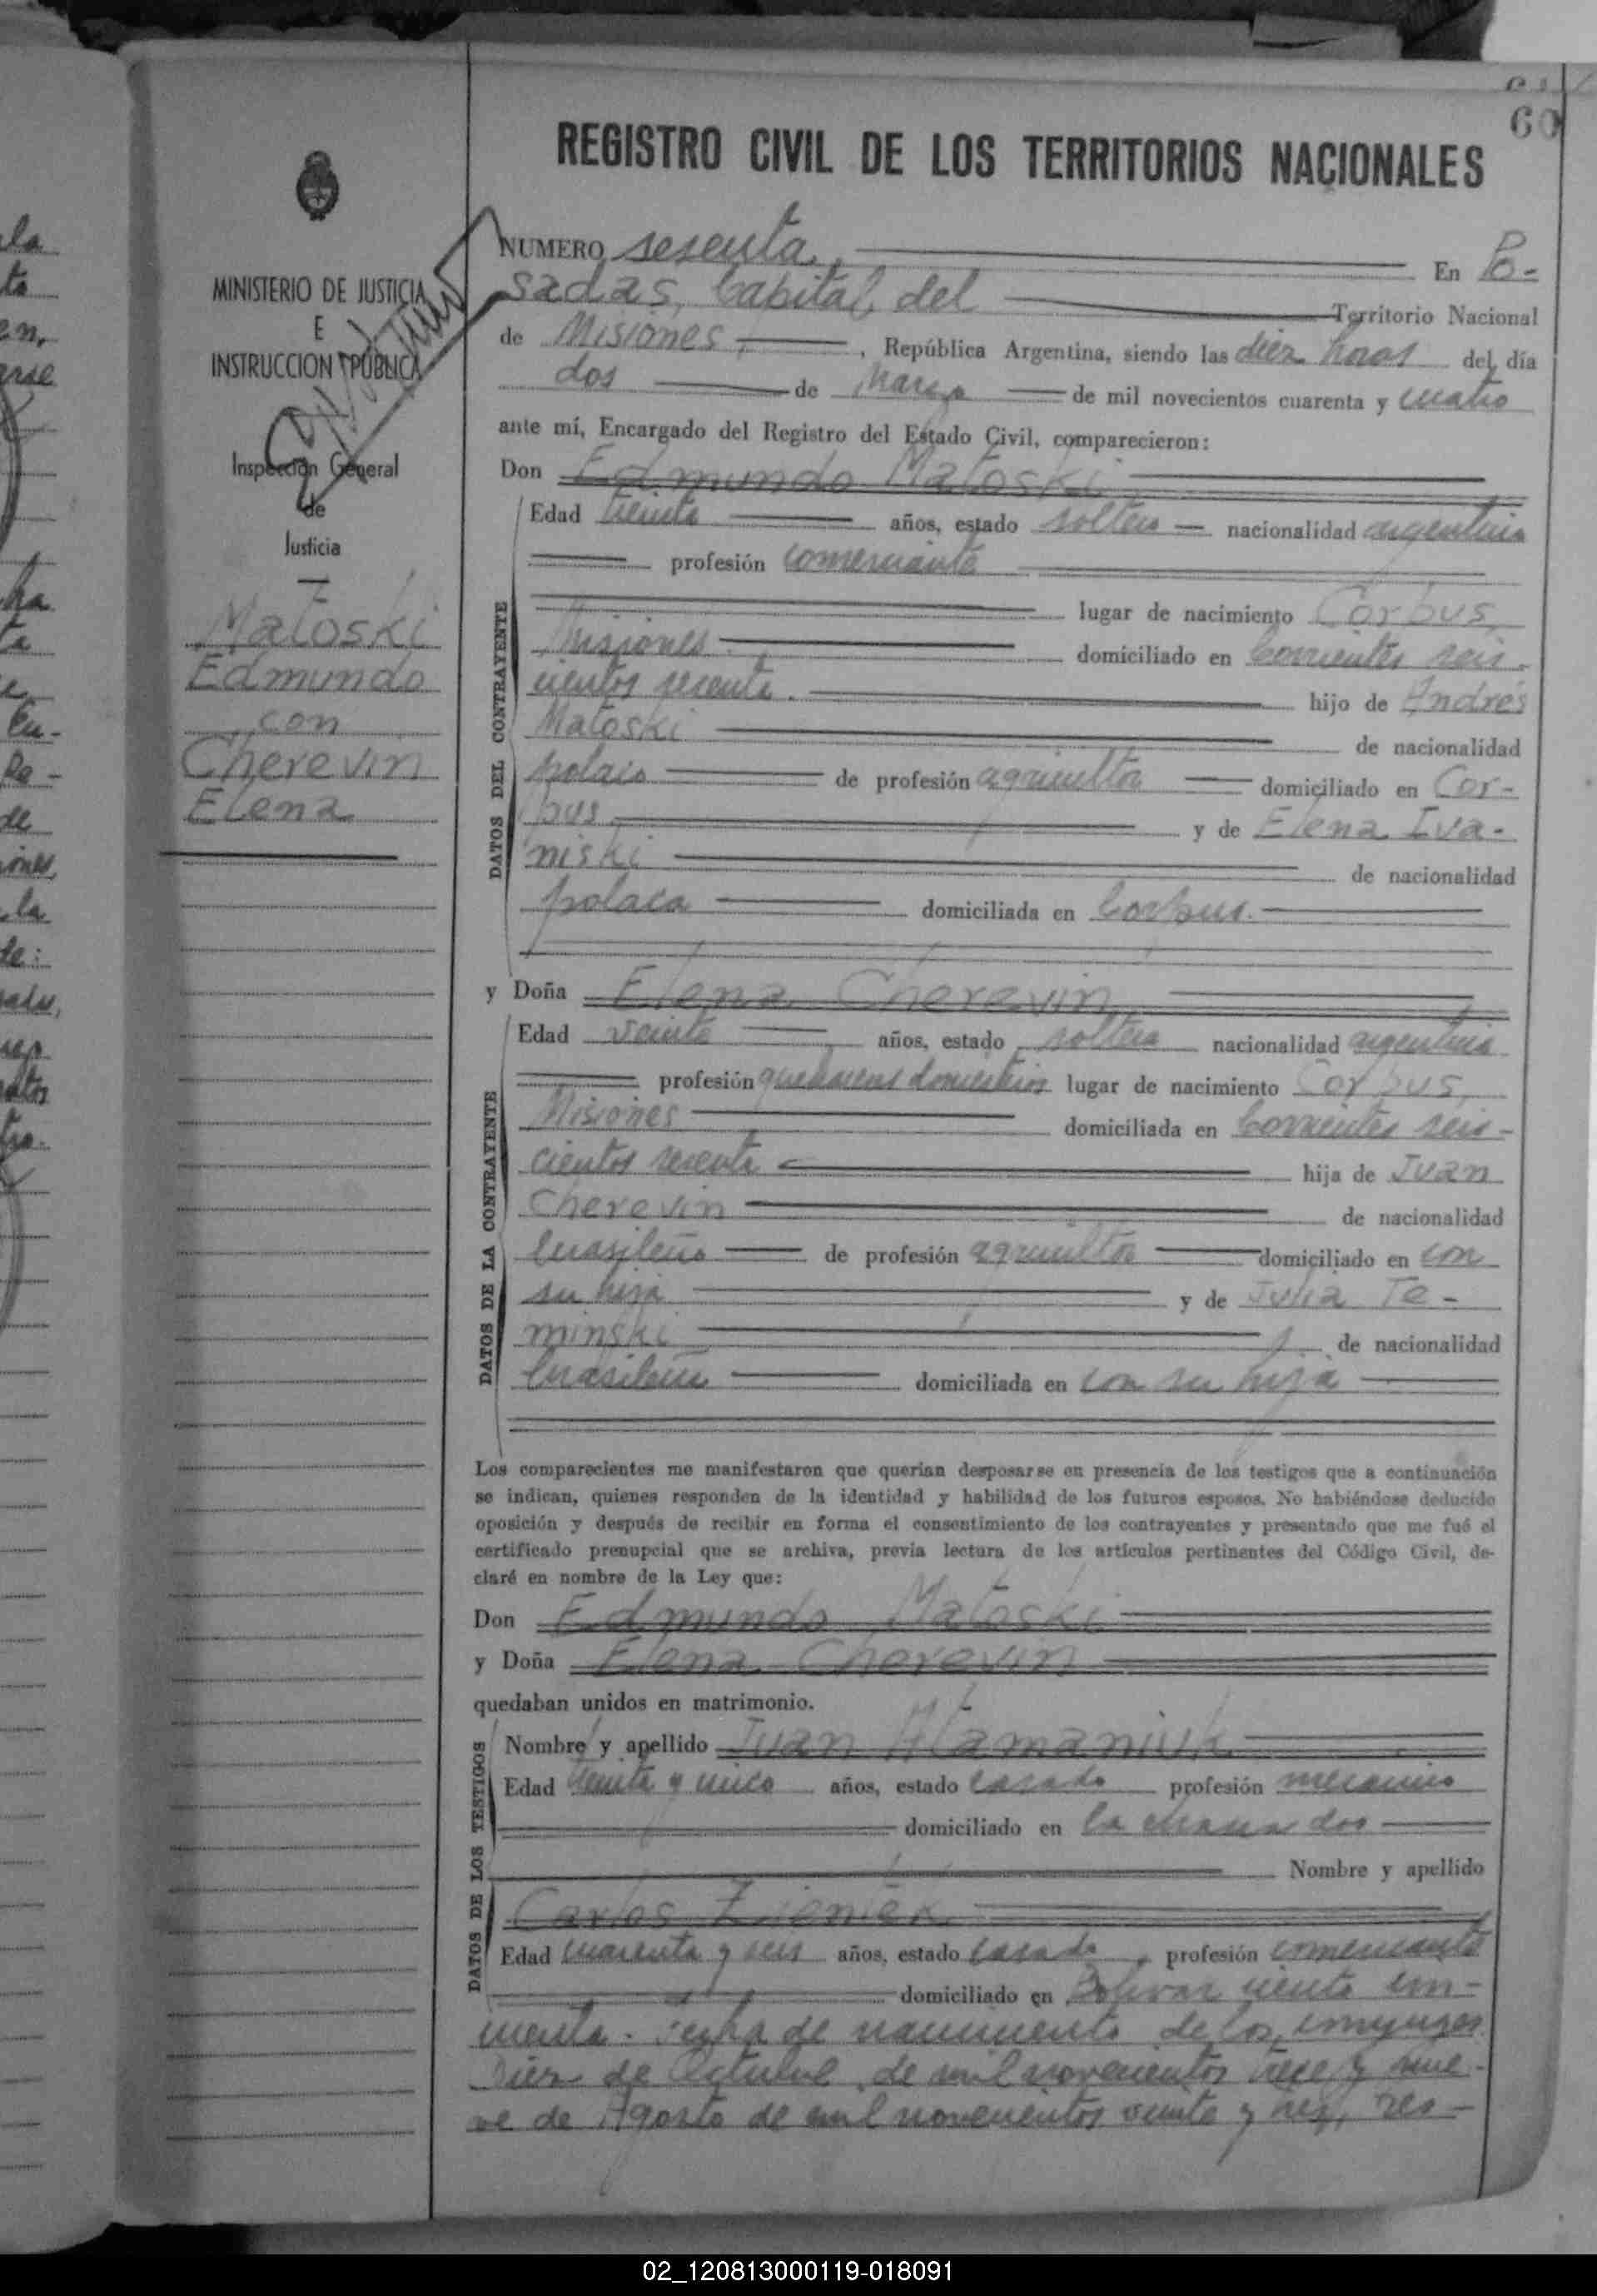 60
REGISTRO CIVIL DE LOS TERRITORIOS NACIONALES
NUMERO sesenta. En Po-
sadas, Capital del Territorio Nacional
de Misiones, , República Argentina, siendo las diez horas del día
dos de Marzo de mil novecientos cuarenta y cuatro
ante mí, Encargado del Registro del Estado Civil, comparecieron:
Don Edmundo Matoski
Edad treinta años, estado soltero nacionalidad argentina
profesión comerciante
lugar de nacimiento Corpus,
Misiones domiciliado en Corrientes seis-
cientos sesenta. hijo de Andrés
Matoski de nacionalidad
polaco de profesión agricultor domiciliado en Cor-
pus y de Elena Iva-
niski de nacionalidad
polaca domiciliada en Corpus.
y Doña Elena Cherevin
Edad veinte años, estado soltera nacionalidad argentina
profesión quehaceres domésticos lugar de nacimiento Corpus,
Misiones domiciliada en Corrientes seis-
cientos sesenta hija de Juan
Cherevin de nacionalidad
brasileño de profesión agricultor domiciliado en con
su hija y de Julia Te-
minski de nacionalidad
brasileña domiciliada en con su hija
Los comparecientes me manifestaron que querían desposarse en presencia de los testigos que a continuación
se indican, quienes responden de la identidad y habilidad de los futuros esposos. No habiéndose deducido
oposición y después de recibir en forma el consentimiento de los contrayentes y presentado que me fué el
certificado prenupcial que se archiva, previa lectura de los artículos pertinentes del Código Civil, de-
claré en nombre de la Ley que:
Don Edmundo Matoski
y Doña Elena Cherevin
quedaban unidos en matrimonio.
Nombre y apellido Juan Atamaniuk
Edad treinta y cinco años, estado casado profesión mecánico
domiciliado en la chacra dos
Nombre y apellido
Carlos Zieniek
Edad cuarenta y seis años, estado casado, profesión comerciante
domiciliado en Bolívar ciento cin-
cuenta. Fecha de nacimiento de los cónyuges
Diez de Octubre de mil novecientos trece y nue-
ve de Agosto de mil novecientos veinte y tres, res-
DATOS DEL CONTRAYENTE
DATOS DE LA CONTRAYENTE
DATOS DE LOS TESTIGOS
MINISTERIO DE JUSTICIA
E
INSTRUCCION PUBLICA
Inspección General
de
Justicia
Matoski
Edmundo
con
Cherevin
Elena
02_120813000119-018091